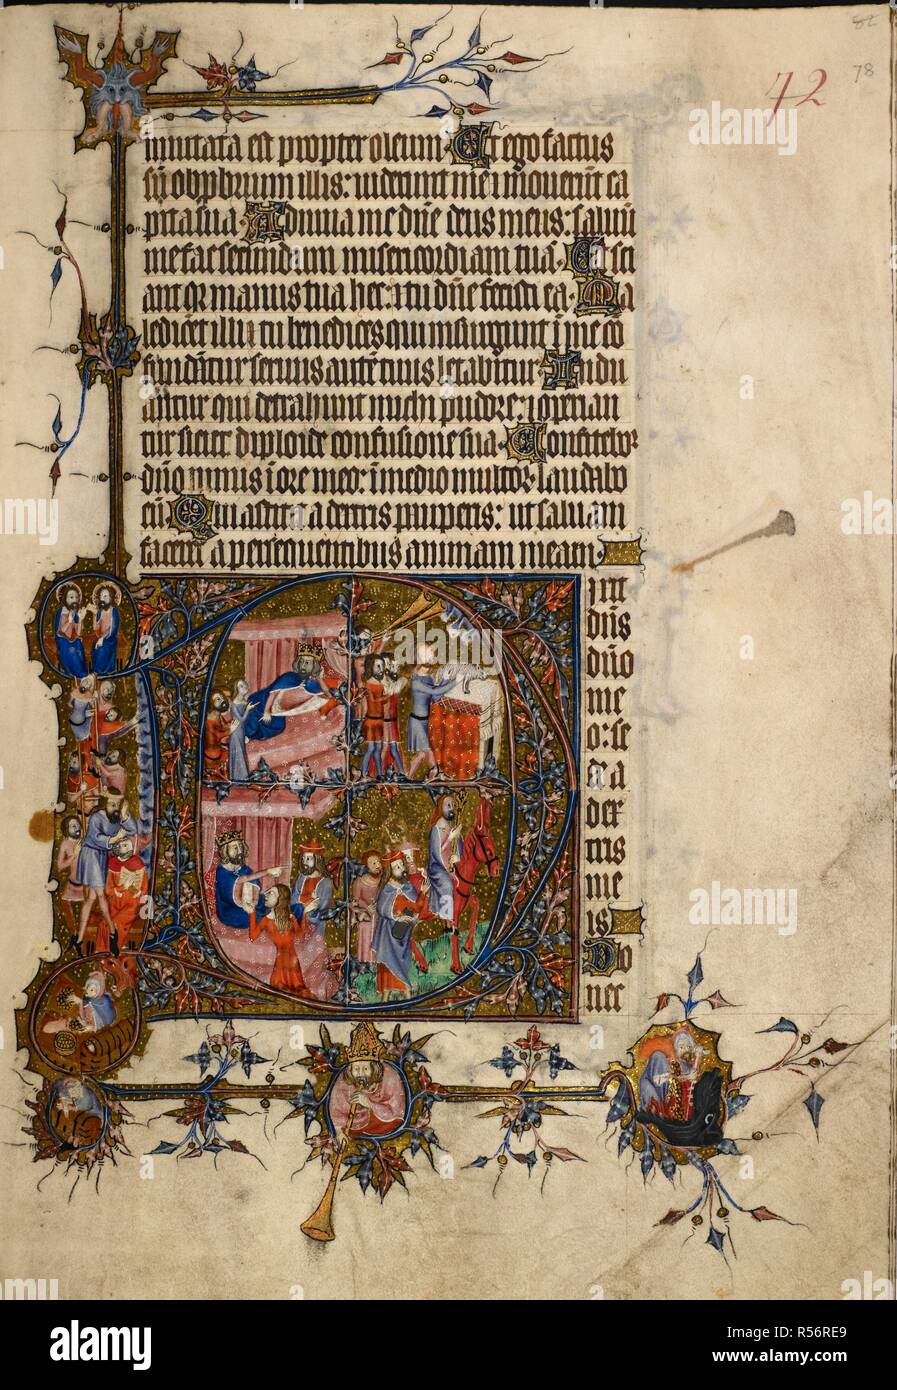 82
78
42
mutata est propter oleum Et ego factus
sū obprbrium illis: uiderunt me ⁊ mouerūt ca
pita sua Adiuua me dn̄e deus meus: saluū
me fac secundum misericordiam tuā. Et sci
ant qr manus tua hec: ⁊ tu dn̄e fecisti ea. Ma
ledicēt illi ⁊ tu benedices qui insurgunt ī me cō
fundātur seruus autē tuus letabitur Indu
antur qui detrahunt michi pudore: ⁊ operian
tur sicut diploide confusione sua Confitebor
dn̄o nimis ī ore meo: ī medio multor laudabo
eū Qui astitit a dextris pauperis: ut saluam
faceret a persequentibus animam meam
ixit
dn̄s
dn̄o
me
o: se
de a
dex
tris
me
is
Do
nec
alamy
alamy
Image ID: R56RE9
www.alamy.com